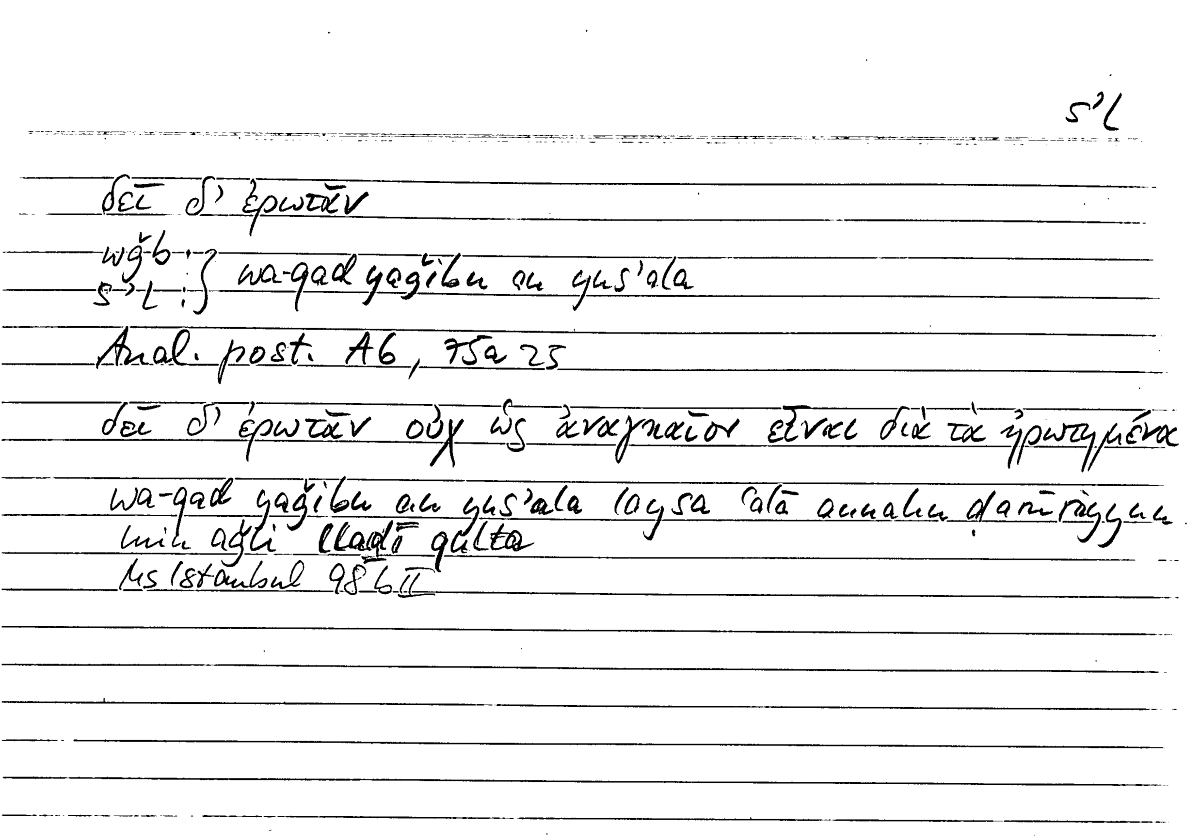 s’l
δεῖ δ’ ἐρωτᾶν
wǧb :
s’l : } wa-qad yaǧibu an yus’ala
Anal. post. A6, 75a25
δεῖ δ’ ἐρωτᾶν οὐχ ὡς ἀναγκαῖον εἶναι διὰ τὰ ἠρωτημένα
wa-qad yaǧibu an yus’ala laysa ‘alā annahu ḍarūrīyyun
min aǧli lladī qulta
Ms Istanbul 98b II